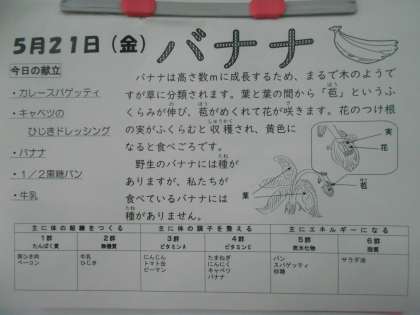 5月21日(金)
バナナ
今日の献立
・カレースパゲッティ
・キャベツの
ひじきドレッシング
・バナナ
・1/2黒糖パン
・牛乳
バナナは高さ数mに成長するため、まるで木のようで
すが草に分類されます。葉と葉の間から「苞」というふ
くらみが伸び、苞がめくれて花が咲きます。花のつけ根
の実がふくらむと収穫され、黄色に
なると食べごろです。
野生のバナナには種が
ありますが、私たちが
食べているバナナには
種がありません。
実
花
苞
葉
主に体の組織をつくる
主に体の調子を整える
主にエネルギーになる
1群
たんぱく質
2群
無機質
3群
ビタミンA
4群
ビタミンC
5群
炭水化物
6群
脂質
豚ひき肉
ベーコン
牛乳
ひじき
にんじん
トマト缶
ピーマン
たまねぎ
にんにく
キャベツ
バナナ
パン
スパゲッティ
砂糖
サラダ油